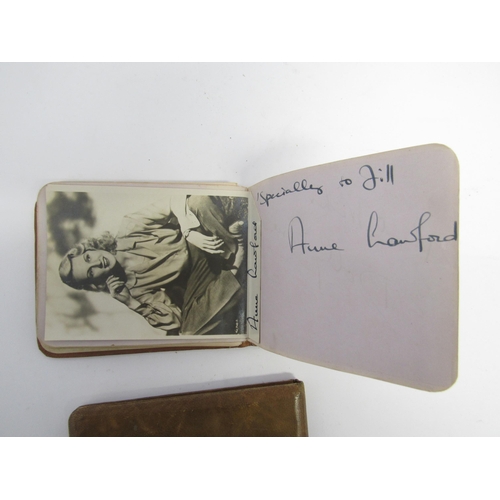 Specially to Jill
Anne Crawford
Anne Crawford